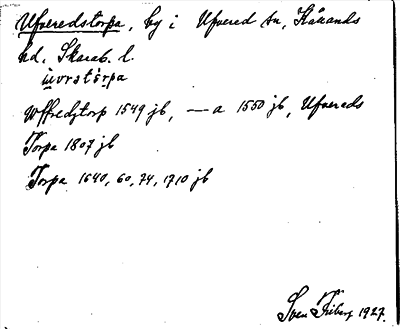 Ufveredstorpa, by i Ufvered sn, Kåkinds
hd. Skarab. l.
ùvrstórpa
Uffredztorp 1549 jb, —a 1550 jb, Ufvereds
Torpa 1807 jb
Torpa 1640, 60, 74, 1710 jb
Sven Friberg 1927.